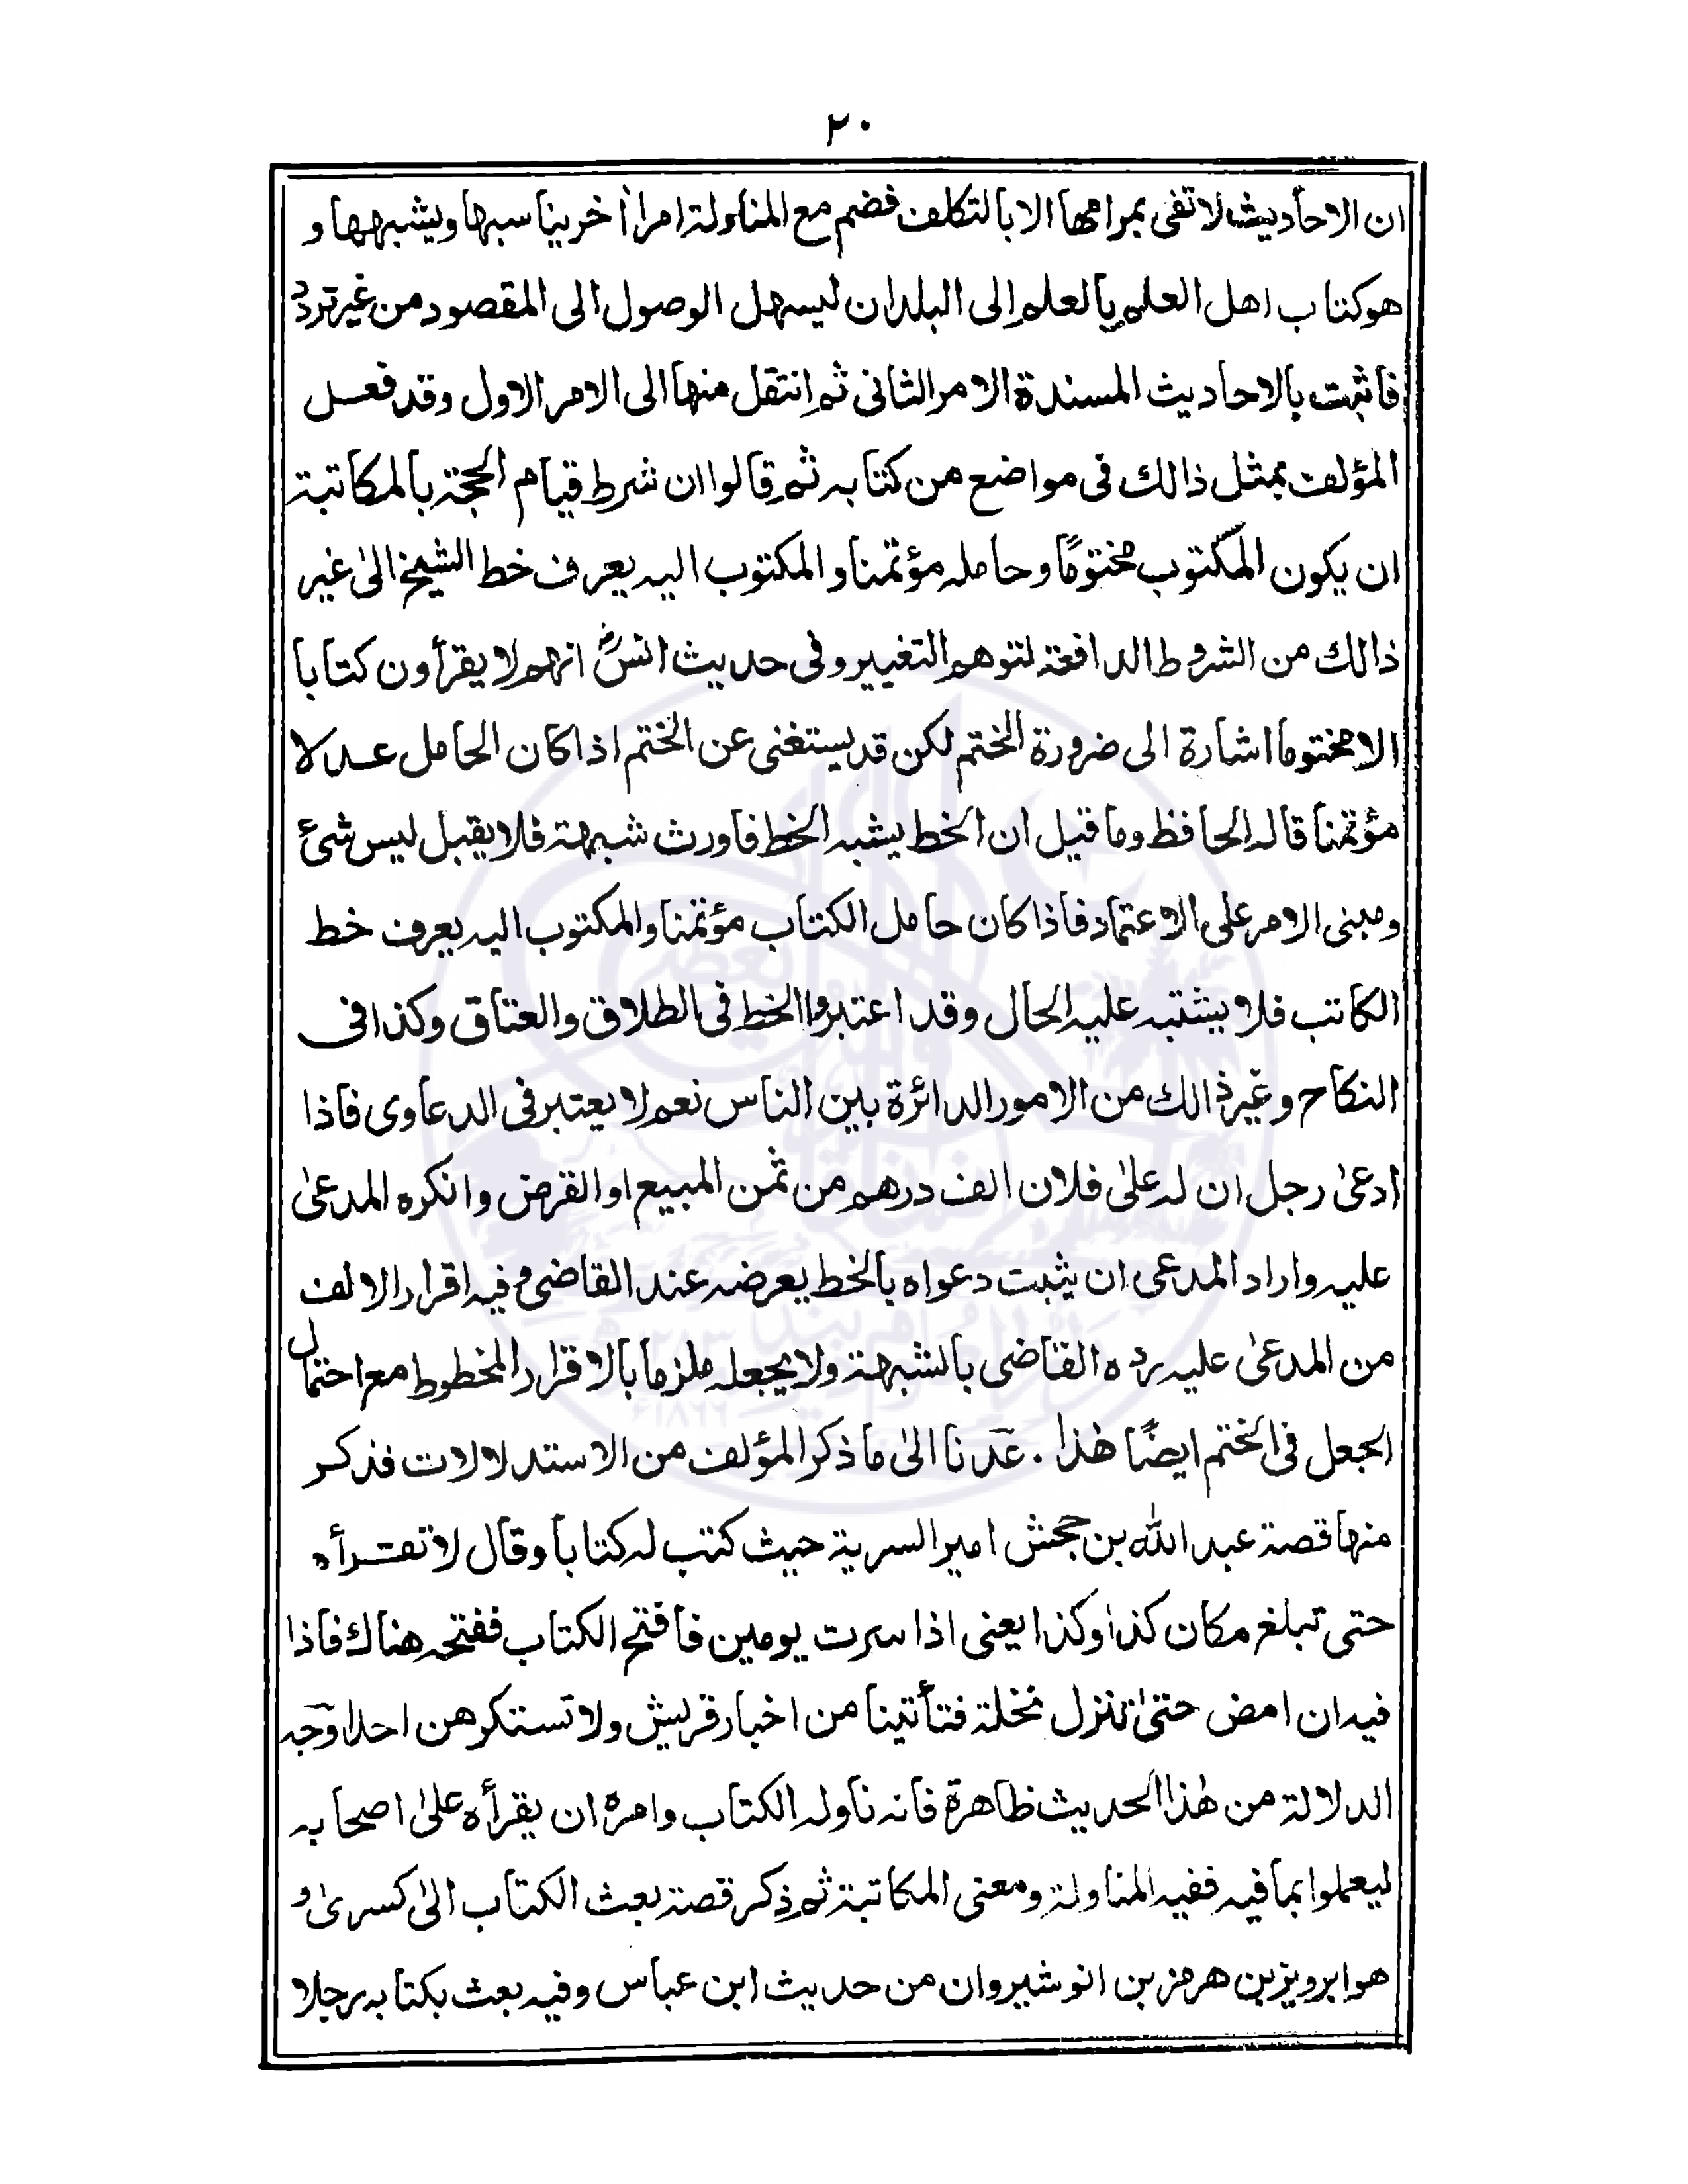 ٢٠
ان الاحاديث لا تفى بمرامها الا بالتكلف فضم مع المناولة امرا أخر يناسبها ويشبهها و
هو كتاب اهل العلم بالعلم إلى البلدان ليسهل الوصول الى المقصود من غير تردد
فاثبت بالاحاديث المسندة الامر الثانى ثم انتقل منها الى الامر الاول وقد فعل
المؤلف بمثل ذالك فى مواضع من كتابه ثم قالوا ان شرط قيام الحجة بالمكاتبة
ان يكون المكتوب مختومًا وحامله مؤتمنا والمكتوب اليه يعرف خط الشيخ الىٰ غير
ذالك من الشروط الدافعة لتوهم التغيير وفى حديث انسؓ انهم لا يقرأون كتابا
الا مختوما اشارة الى ضرورة الختم لكن قد يستغنى عن الختم اذا كان الحامل عدلا
مؤتمنا قاله الحافظ وما قيل ان الخط يشبه الخط فاورث شبهة فلا يقبل ليس شئ
ومبنى الامر على الاعتماد فاذا كان حامل الكتاب مؤتمنا والمكتوب اليه يعرف خط
الكاتب فلا يشتبه عليه الحال وقد اعتبروا الخط فى الطلاق والعتاق وكذا فى
النكاح وغير ذالك من الامور الدائرة بين الناس نعم لا يعتبر فى الدعاوى فاذا
ادعىٰ رجل ان له علىٰ فلان الف درهم من ثمن المبيع او القرض وانكره المدعىٰ
عليه واراد المدعى ان يثبت دعواه بالخط يعرضه عند القاضى وفيه اقرار الالف
من المدعىٰ عليه رده القاضى بالشبهة ولا يجعله ملزما بالاقرار المخطوط مع احتمال
الجعل فى الختم ايضًا هٰذا . عدنا الىٰ ما ذكر المؤلف من الاستدلالات فذكر
منها قصة عبد الله بن جحش امير السرية حيث كتب له كتابا وقال لا تقرأه
حتى تبلغ مكان كذا وكذا يعنى اذا سرت يومين فافتح الكتاب ففتحه هناك فاذا
فيه ان امض حتىٰ تنزل نخلة فتأتينا من اخبار قريش ولا تستكرهن احدا وجه
الدلالة من هٰذا الحديث ظاهرة فانه ناوله الكتاب وامره ان يقرأه علىٰ اصحابه
ليعملوا بما فيه ففيه المناولة ومعنى المكاتبة ثم ذكر قصة بعث الكتاب الىٰ كسرىٰ و
هو ابرويز بن هرمز بن انوشيروان من حديث ابن عباس وفيه بعث بكتابه رجلا